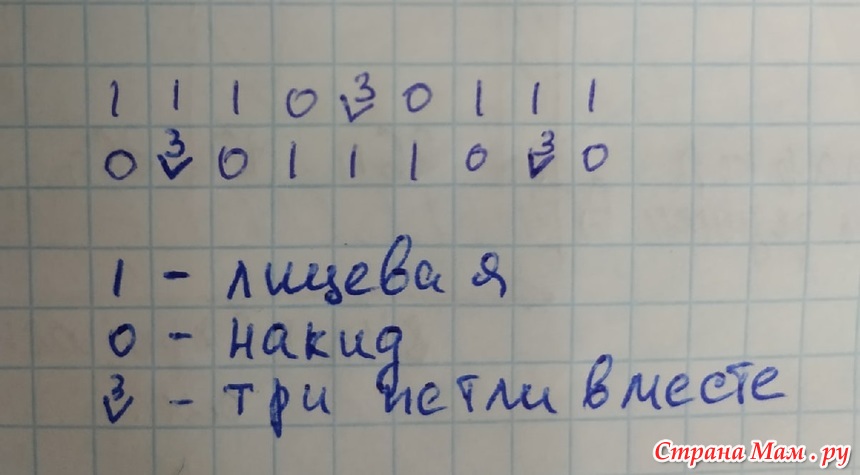 1 1 1 0 3 0 1 1 1
0 3 0 1 1 1 0 3 0
1 - лицевая
0 - накид
3 - три петли вместе
Страна Мам.ру